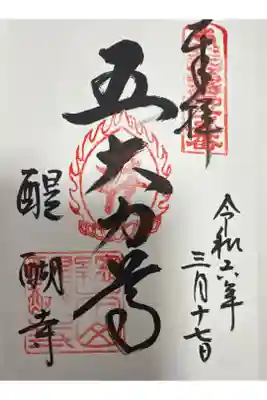 奉拝
五大力尊
醍醐寺
令和六年
三月十七日